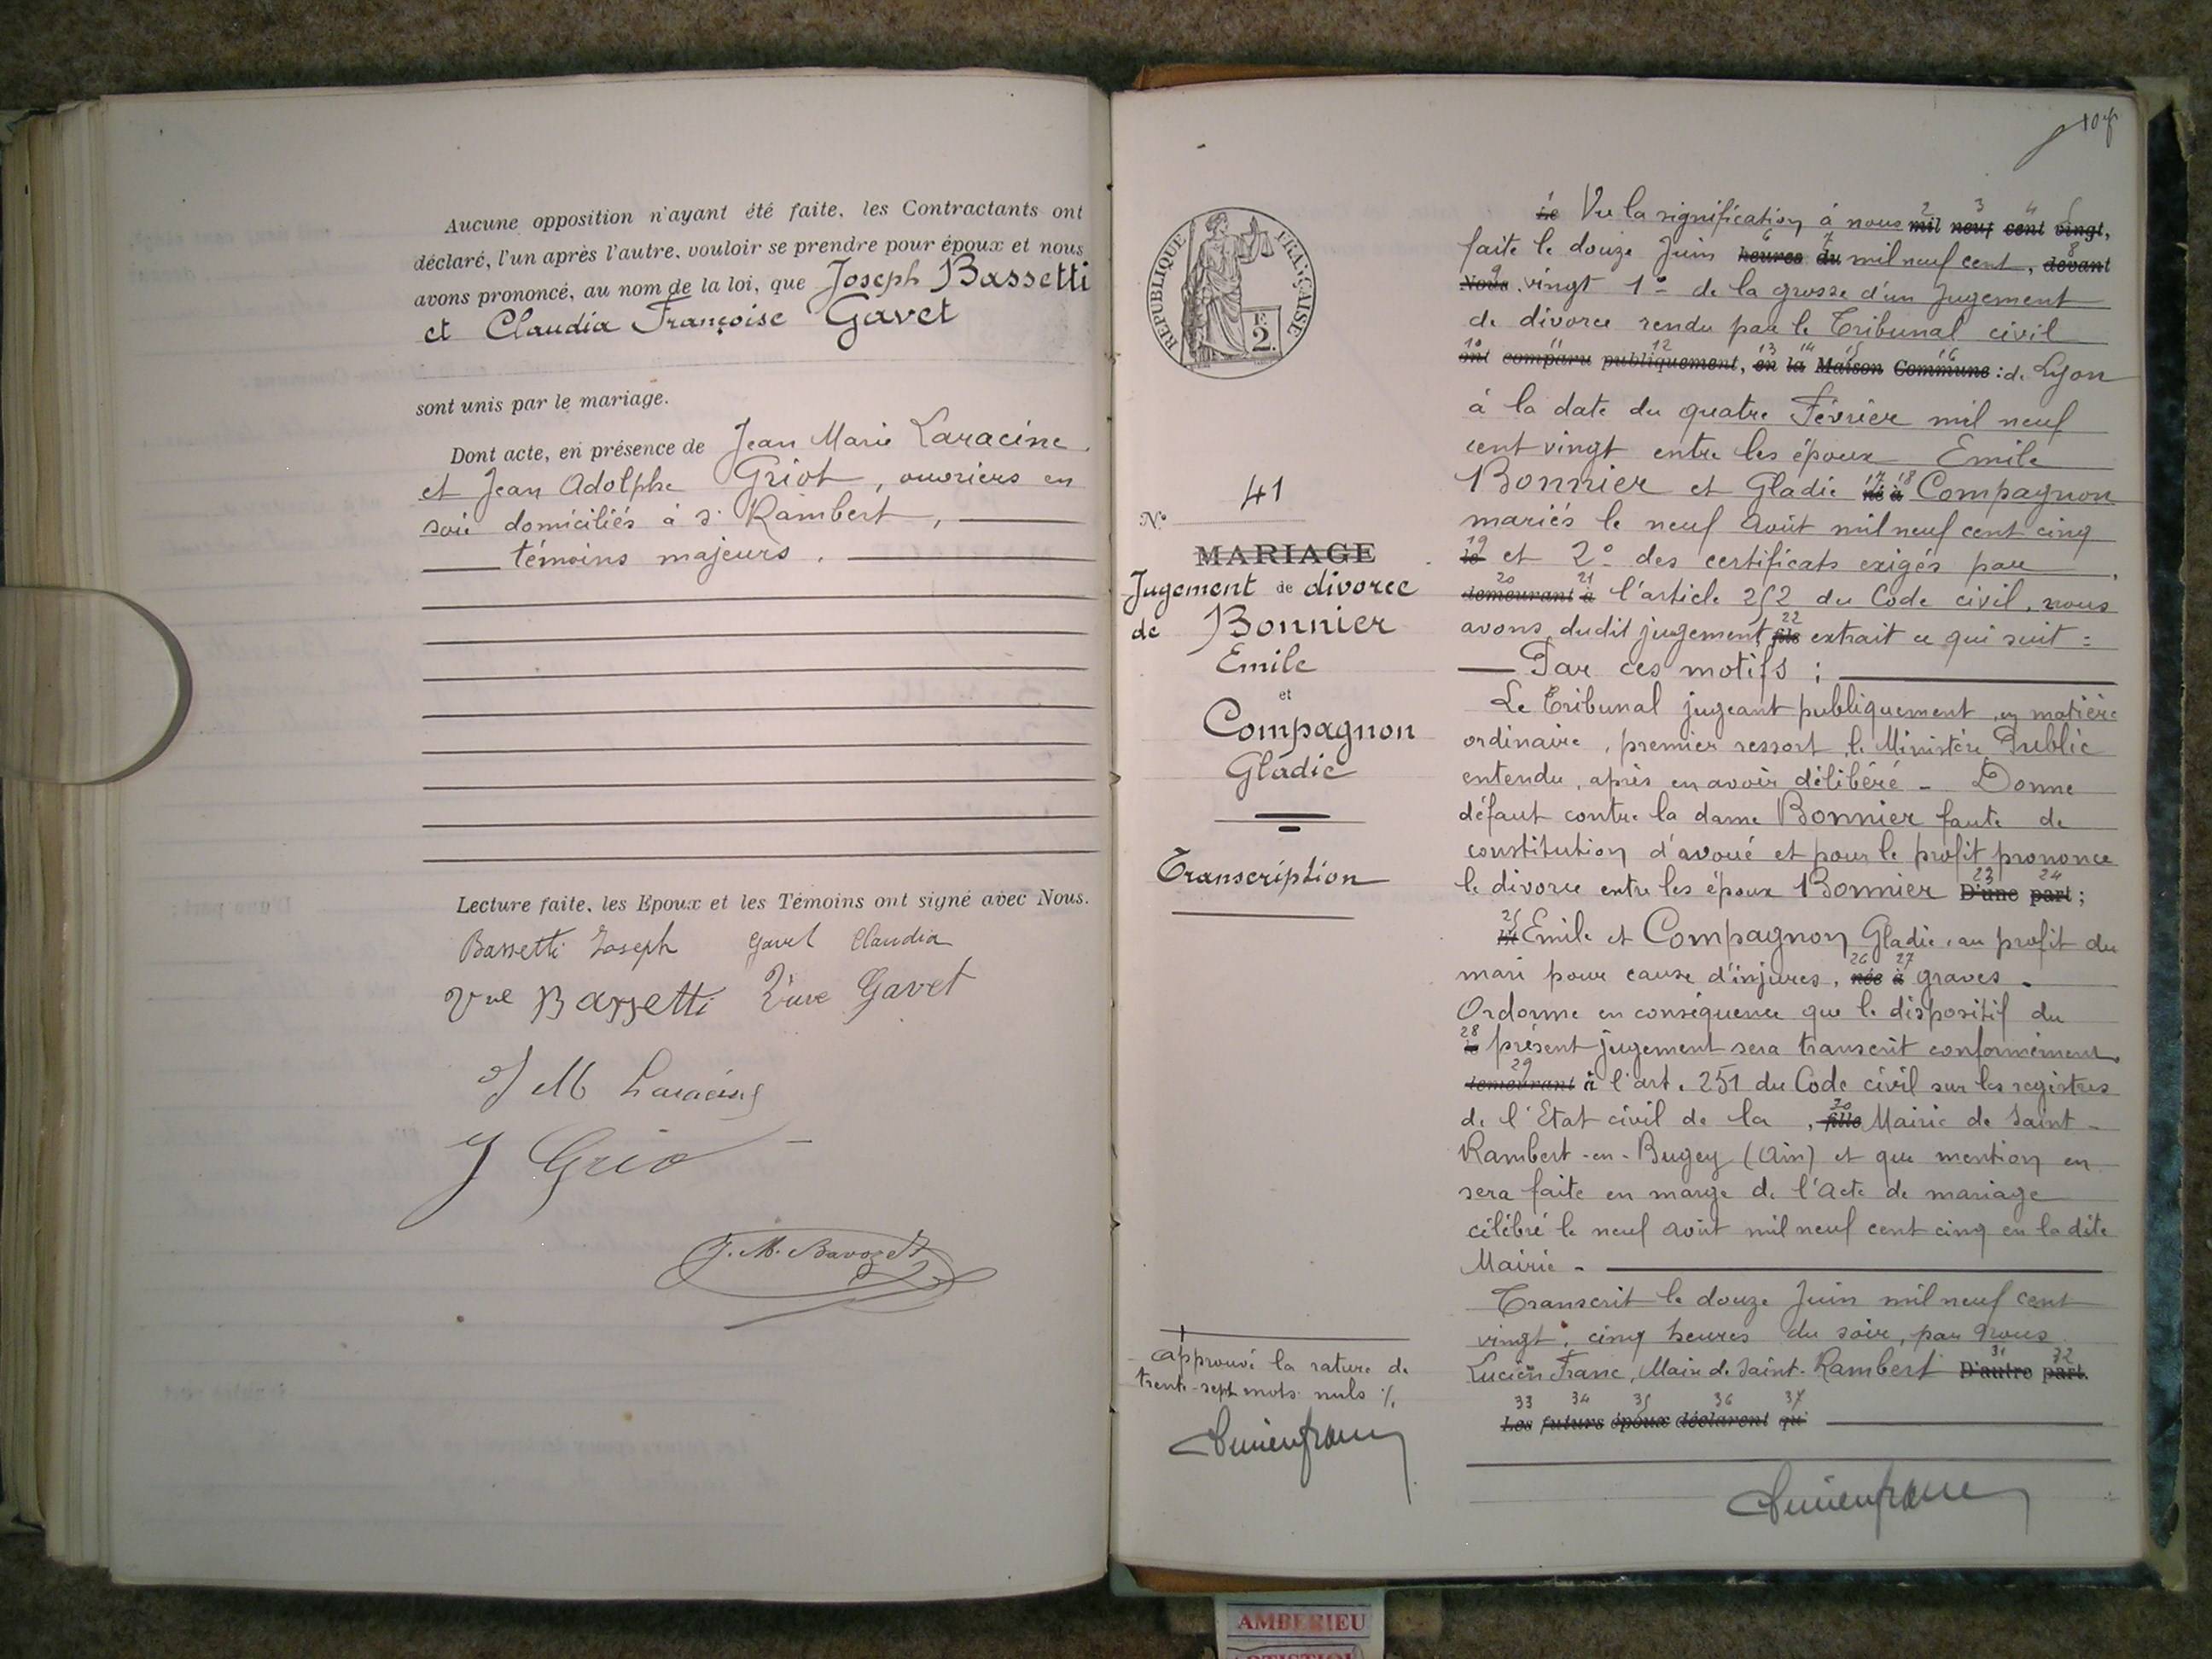 Aucune opposition n'ayant été faite, les Contractants ont
déclaré, l'un après l'autre, vouloir se prendre pour époux et nous
avons prononcé, au nom de la loi, que Joseph Bassetti
et Claudia Françoise Gavet
sont unis par le mariage.
Dont acte, en présence de Jean Marie Laracine
et Jean Adolphe Griot, ouvriers en
soie domiciliés à St Rambert,
témoins majeurs.
Lecture faite, les Epoux et les Témoins ont signé avec Nous.
Bassetti Joseph Gavet Claudia
Vve Bassetti Vve Gavet
J M Laracine
J Griot
J. M. Bavozet
REPUBLIQUE FRANÇAISE
F
2.
41
N.°
MARIAGE
Jugement de divorce
de Bonnier
Emile
et
Compagnon
Gladie
Transcription
Approuvé la rature de
trente-sept mots nuls ./.
Lucienfranc
1 2 3 4 5
Le Vu la signification à nous mil neuf cent vingt,
6 7 8
faite le douze Juin heures du mil neuf cent, devant
9
Nous vingt 1° de la grosse d'un Jugement
de divorce rendu par le Tribunal civil
10 11 12 13 14 15 16
ont comparu publiquement, en la Maison Commune : de Lyon
à la date du quatre Février mil neuf
cent vingt entre les époux Emile
17 18
Bonnier et Gladie né à Compagnon
mariés le neuf Août mil neuf cent cinq
19
le et 2° des certificats exigés par
20 21
demeurant à l'article 252 du Code civil, nous
22
avons dudit jugement, fils extrait ce qui suit :
Par ces motifs ;
Le Tribunal jugeant publiquement en matière
ordinaire, premier ressort, le Ministère Public
entendu, après en avoir délibéré - Donne
défaut contre la dame Bonnier faute de
constitution d'avoué et pour le profit prononce
23 24
le divorce entre les époux Bonnier D'une part ;
25
Et Emile et Compagnon Gladie, au profit du
26 27
mari pour cause d'injures, née à graves.
Ordonne en conséquence que le dispositif du
28
le présent jugement sera transcrit conformément
29
demeurant à l'art. 251 du Code civil sur les registres
30
de l'Etat civil de la, fille Mairie de Saint-
Rambert-en-Bugey (Ain) et que mention en
sera faite en marge de l'Acte de mariage
célébré le neuf août mil neuf cent cinq en la dite
Mairie.
Transcrit le douze Juin mil neuf cent
vingt, cinq heures du soir, par Nous
31 32
Lucien Franc, Maire de Saint-Rambert D'autre part.
33 34 35 36 37
Les futurs époux déclarent qu
Lucienfranc
AMBERIEU